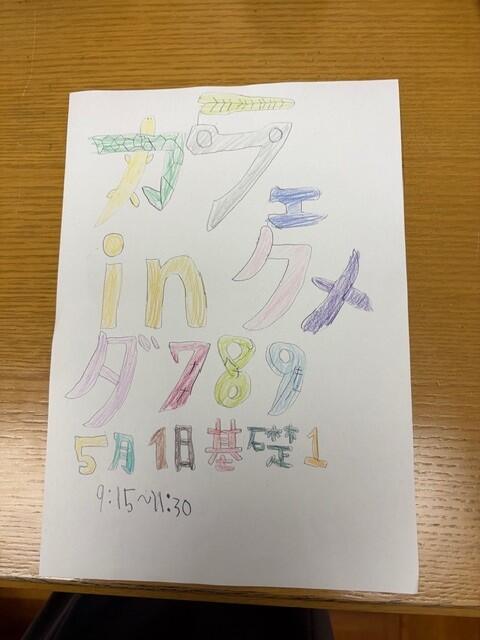 カフェ
inクメ
ダ789
5月1日基礎1
9:15~11:30